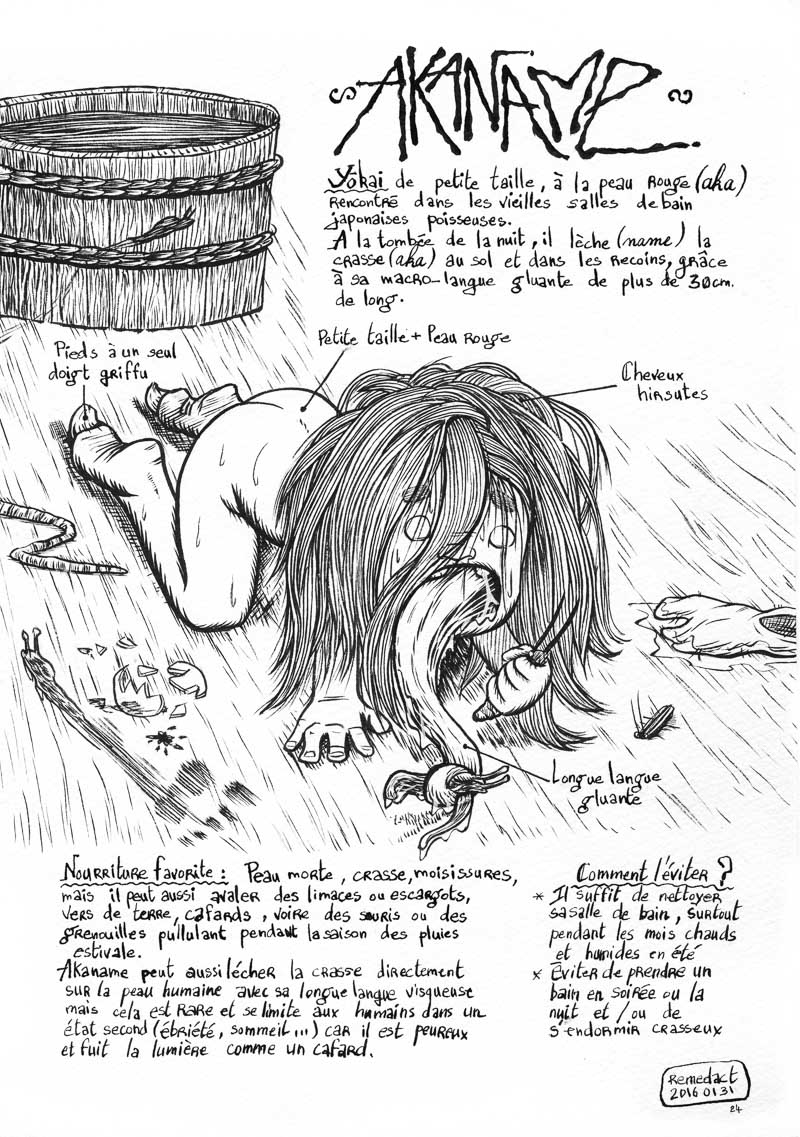 AKANAME
Yōkai de petite taille, à la peau rouge (aka)
rencontré dans les vieilles salles de bain
japonaises poisseuses.
A la tombée de la nuit, il lèche (name) la
crasse (aka) au sol et dans les recoins, grâce
à sa macro-langue gluante de plus de 30cm.
de long.
Petite taille + Peau rouge
Pieds à un seul
doigt griffu
Cheveux
hirsutes
Longue langue
gluante
Nourriture favorite : Peau morte, crasse, moisissures,
mais il peut aussi avaler des limaces ou escargots,
vers de terre, cafards, voire des souris ou des
grenouilles pullulant pendant la saison des pluies
estivale.
Akaname peut aussi lécher la crasse directement
sur la peau humaine avec sa longue langue visqueuse
mais cela est rare et se limite aux humains dans un
état second (ébriété, sommeil...) car il est peureux
et fuit la lumière comme un cafard.
Comment l'éviter ?
* Il suffit de nettoyer
sa salle de bain, surtout
pendant les mois chauds
et humides en été
* Eviter de prendre un
bain en soirée ou la
nuit et/ou de
s'endormir crasseux
Remedact
2016 01 31
24